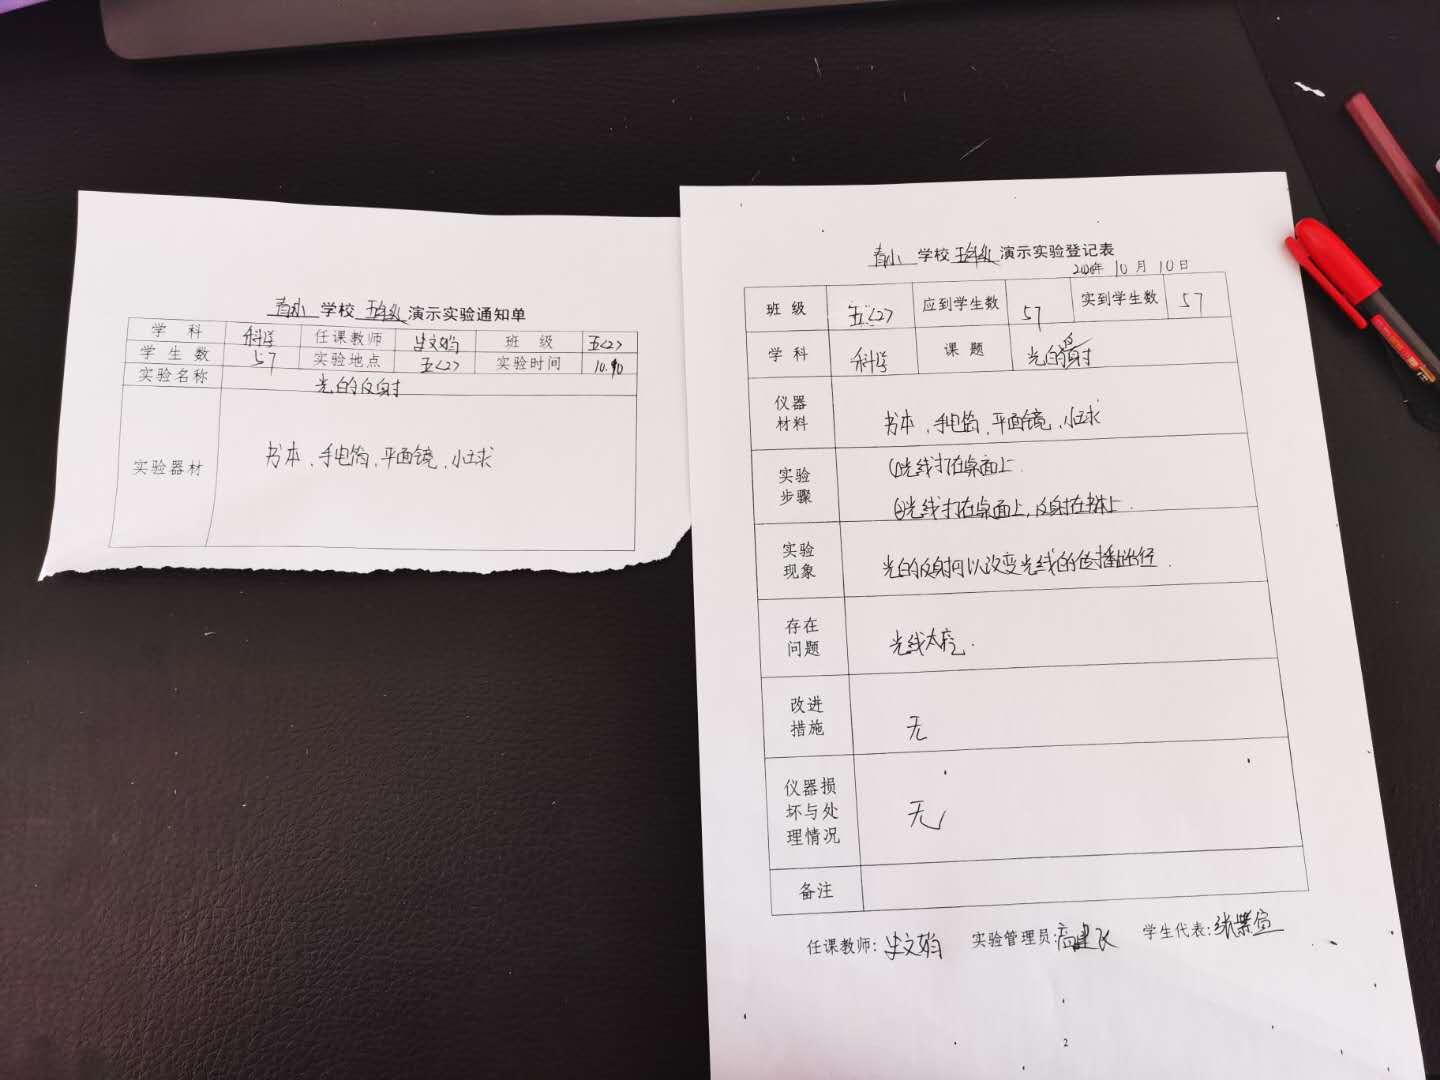 学校 五年级 演示实验通知单
学科 科学 任课教师 史文娟 班级 五<2>
学生数 57 实验地点 五<2> 实验时间 10.10
实验名称 光的反射
实验器材 书本、手电筒、平面镜、小球
学校 五年级 演示实验登记表
10月10日
班级 五<2> 应到学生数 57 实到学生数 57
学科 科学 课题 光的反射
仪器材料 书本、手电筒、平面镜、小球
实验步骤 ①光线打在桌面上.
②光线打在桌面上,反射在书本上.
实验现象 光的反射可以改变光线的传播路径.
存在问题 光线太亮.
改进措施 无
仪器损坏与处理情况 无
备注
任课教师: 史文娟 实验管理员: 学生代表:
2